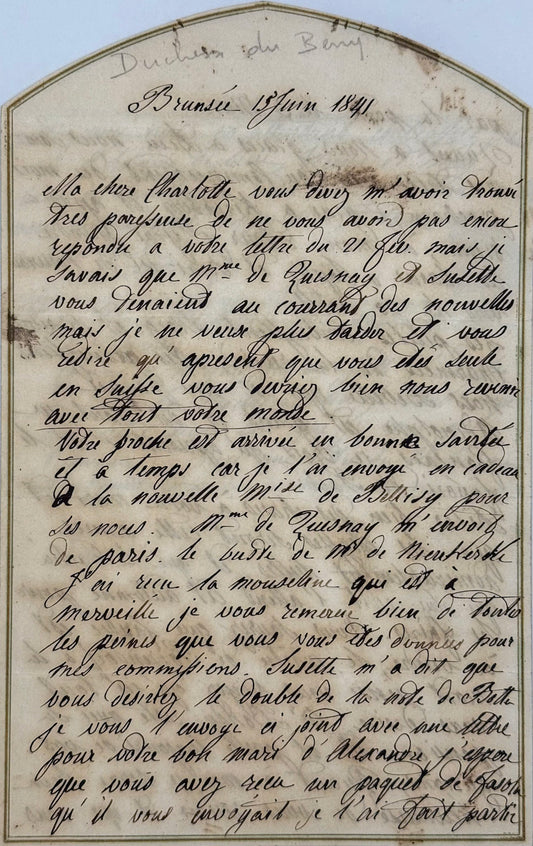 Duchess du Berry
Brunsée 15 Juin 1841
Ma chere Charlotte vous devez m'avoir trouvé
tres paresseuse de ne vous avoir pas encor
repondu a votre lettre du 21 fev. mais je
savais que Mme de Quesnay et Susette
vous tenaient au courrant des nouvelles
mais je ne veux plus tarder et vous
redire qu'apresent que vous etes seule
en Suisse vous devriez bien nous revenir
avec tout votre monde.
Votre broche est arrivee en bonne santée
et a temps car je l'ai envoyé en cadeau
a la nouvelle Mise de Bellisy pour
ses noces. Mme de Quesnay m'envoit
de paris le buste de Mr de Nieukerke
J'ai recu la mouseline qui est a
merveille je vous remercie bien de toutes
les peines que vous vous etes données pour
mes commissions. Susette m'a dit que
vous desiriez le double de la note de
je vous l'envoye ci joint avec une lettre
pour votre bon mari d'Alexandre, j'espere
que vous avez recu un paquet de
qu'il vous envoyait je l'ai fait partir